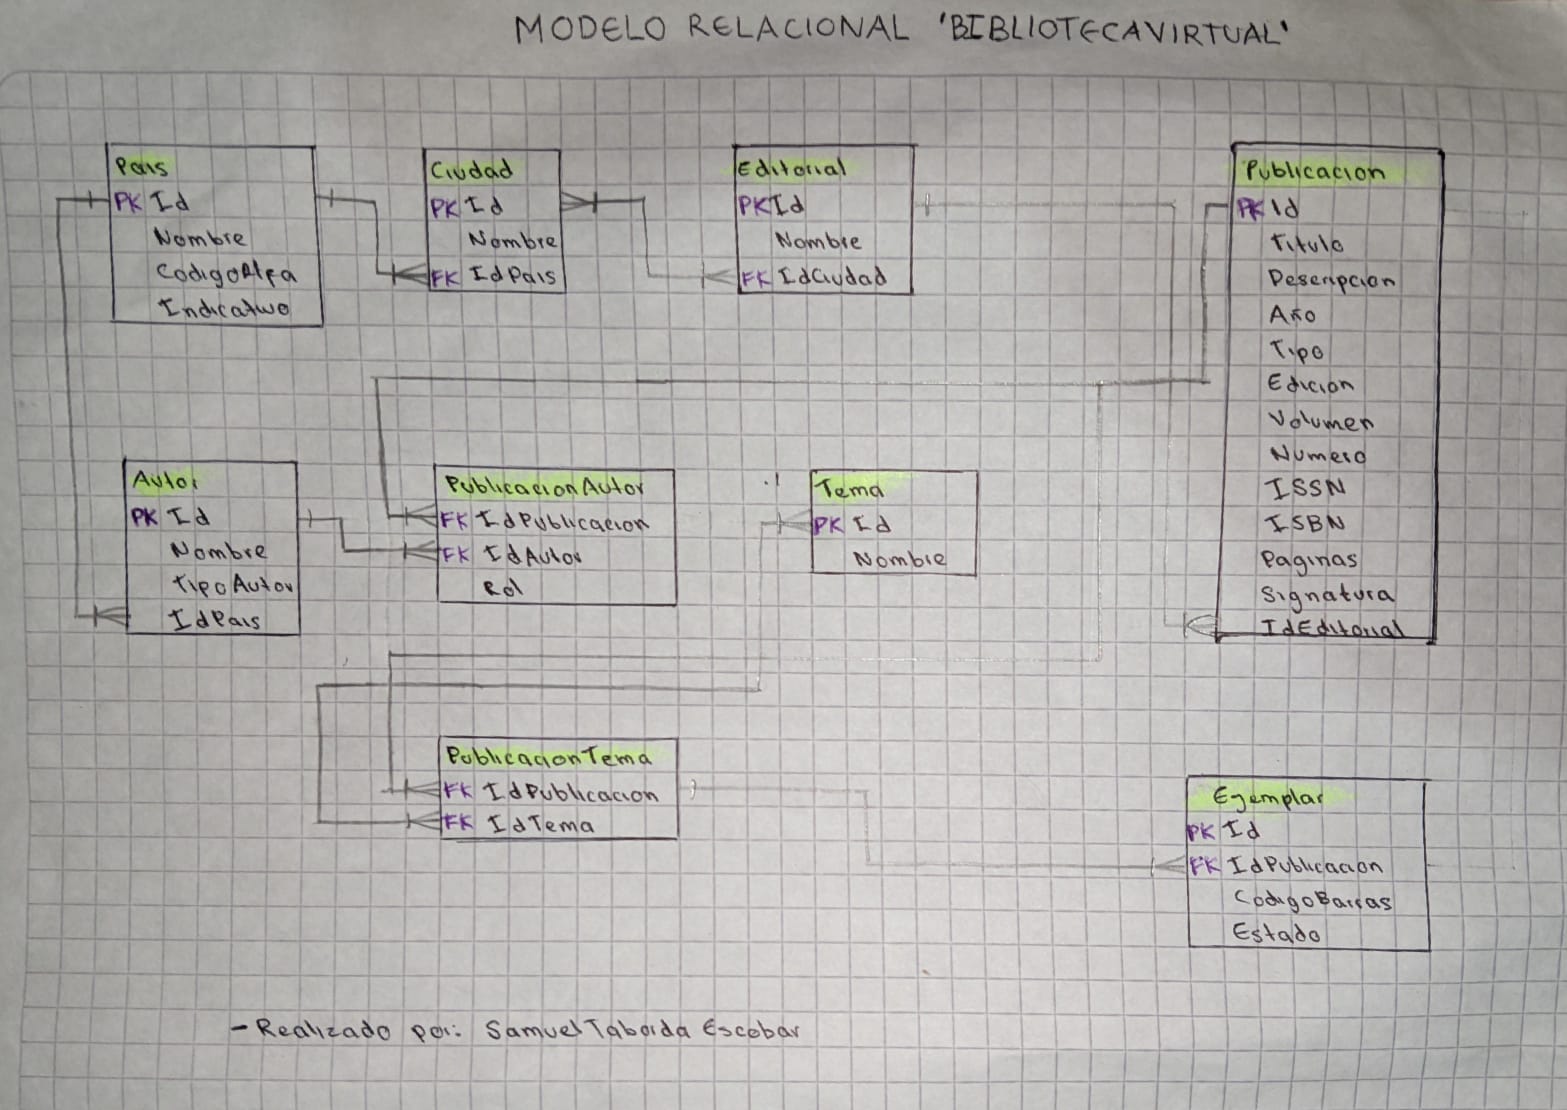 MODELO RELACIONAL 'BIBLIOTECAVIRTUAL'
Pais
PK Id
Nombre
CodigoAlfa
Indicativo
Ciudad
PK Id
Nombre
FK IdPais
Editorial
PK Id
Nombre
FK IdCiudad
Publicacion
PK Id
Titulo
Descripcion
Año
Tipo
Edicion
Volumen
Numero
ISSN
ISBN
Paginas
Signatura
IdEditorial
Autor
PK Id
Nombre
TipoAutor
IdPais
PublicacionAutor
FK IdPublicacion
FK IdAutor
Rol
Tema
PK Id
Nombre
PublicacionTema
FK IdPublicacion
FK IdTema
Ejemplar
PK Id
FK IdPublicacion
CodigoBarras
Estado
- Realizado por: Samuel Taborda Escobar